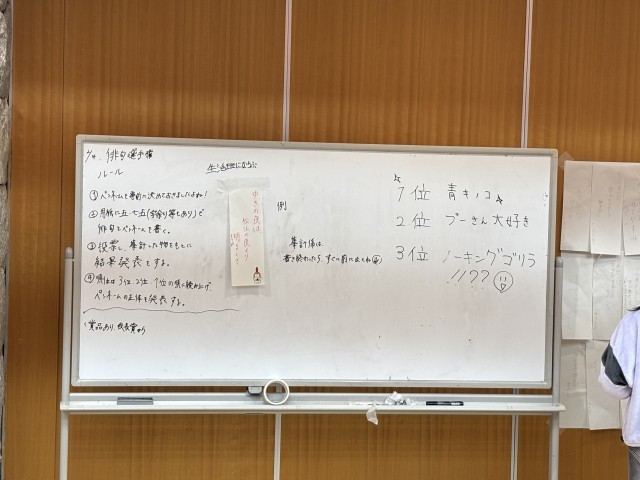 俳句選手権
ルール
① ペンネームを事前に決めておきましたよね!
② 用紙に五・七五(字余り等もあり)で
俳句とペンネームを書く。
③ 投票し、集計した物をもとに
結果発表をする。
④ 順位は3位、2位、1位の順に読み上げ、
ペンネームの正体を発表する。
(賞品あり、
例
集計係は
書き終わったら、すぐに前に出てね
1位 青キノコ
2位 プーさん大好き
3位 ノーキングゴリラ
!!??